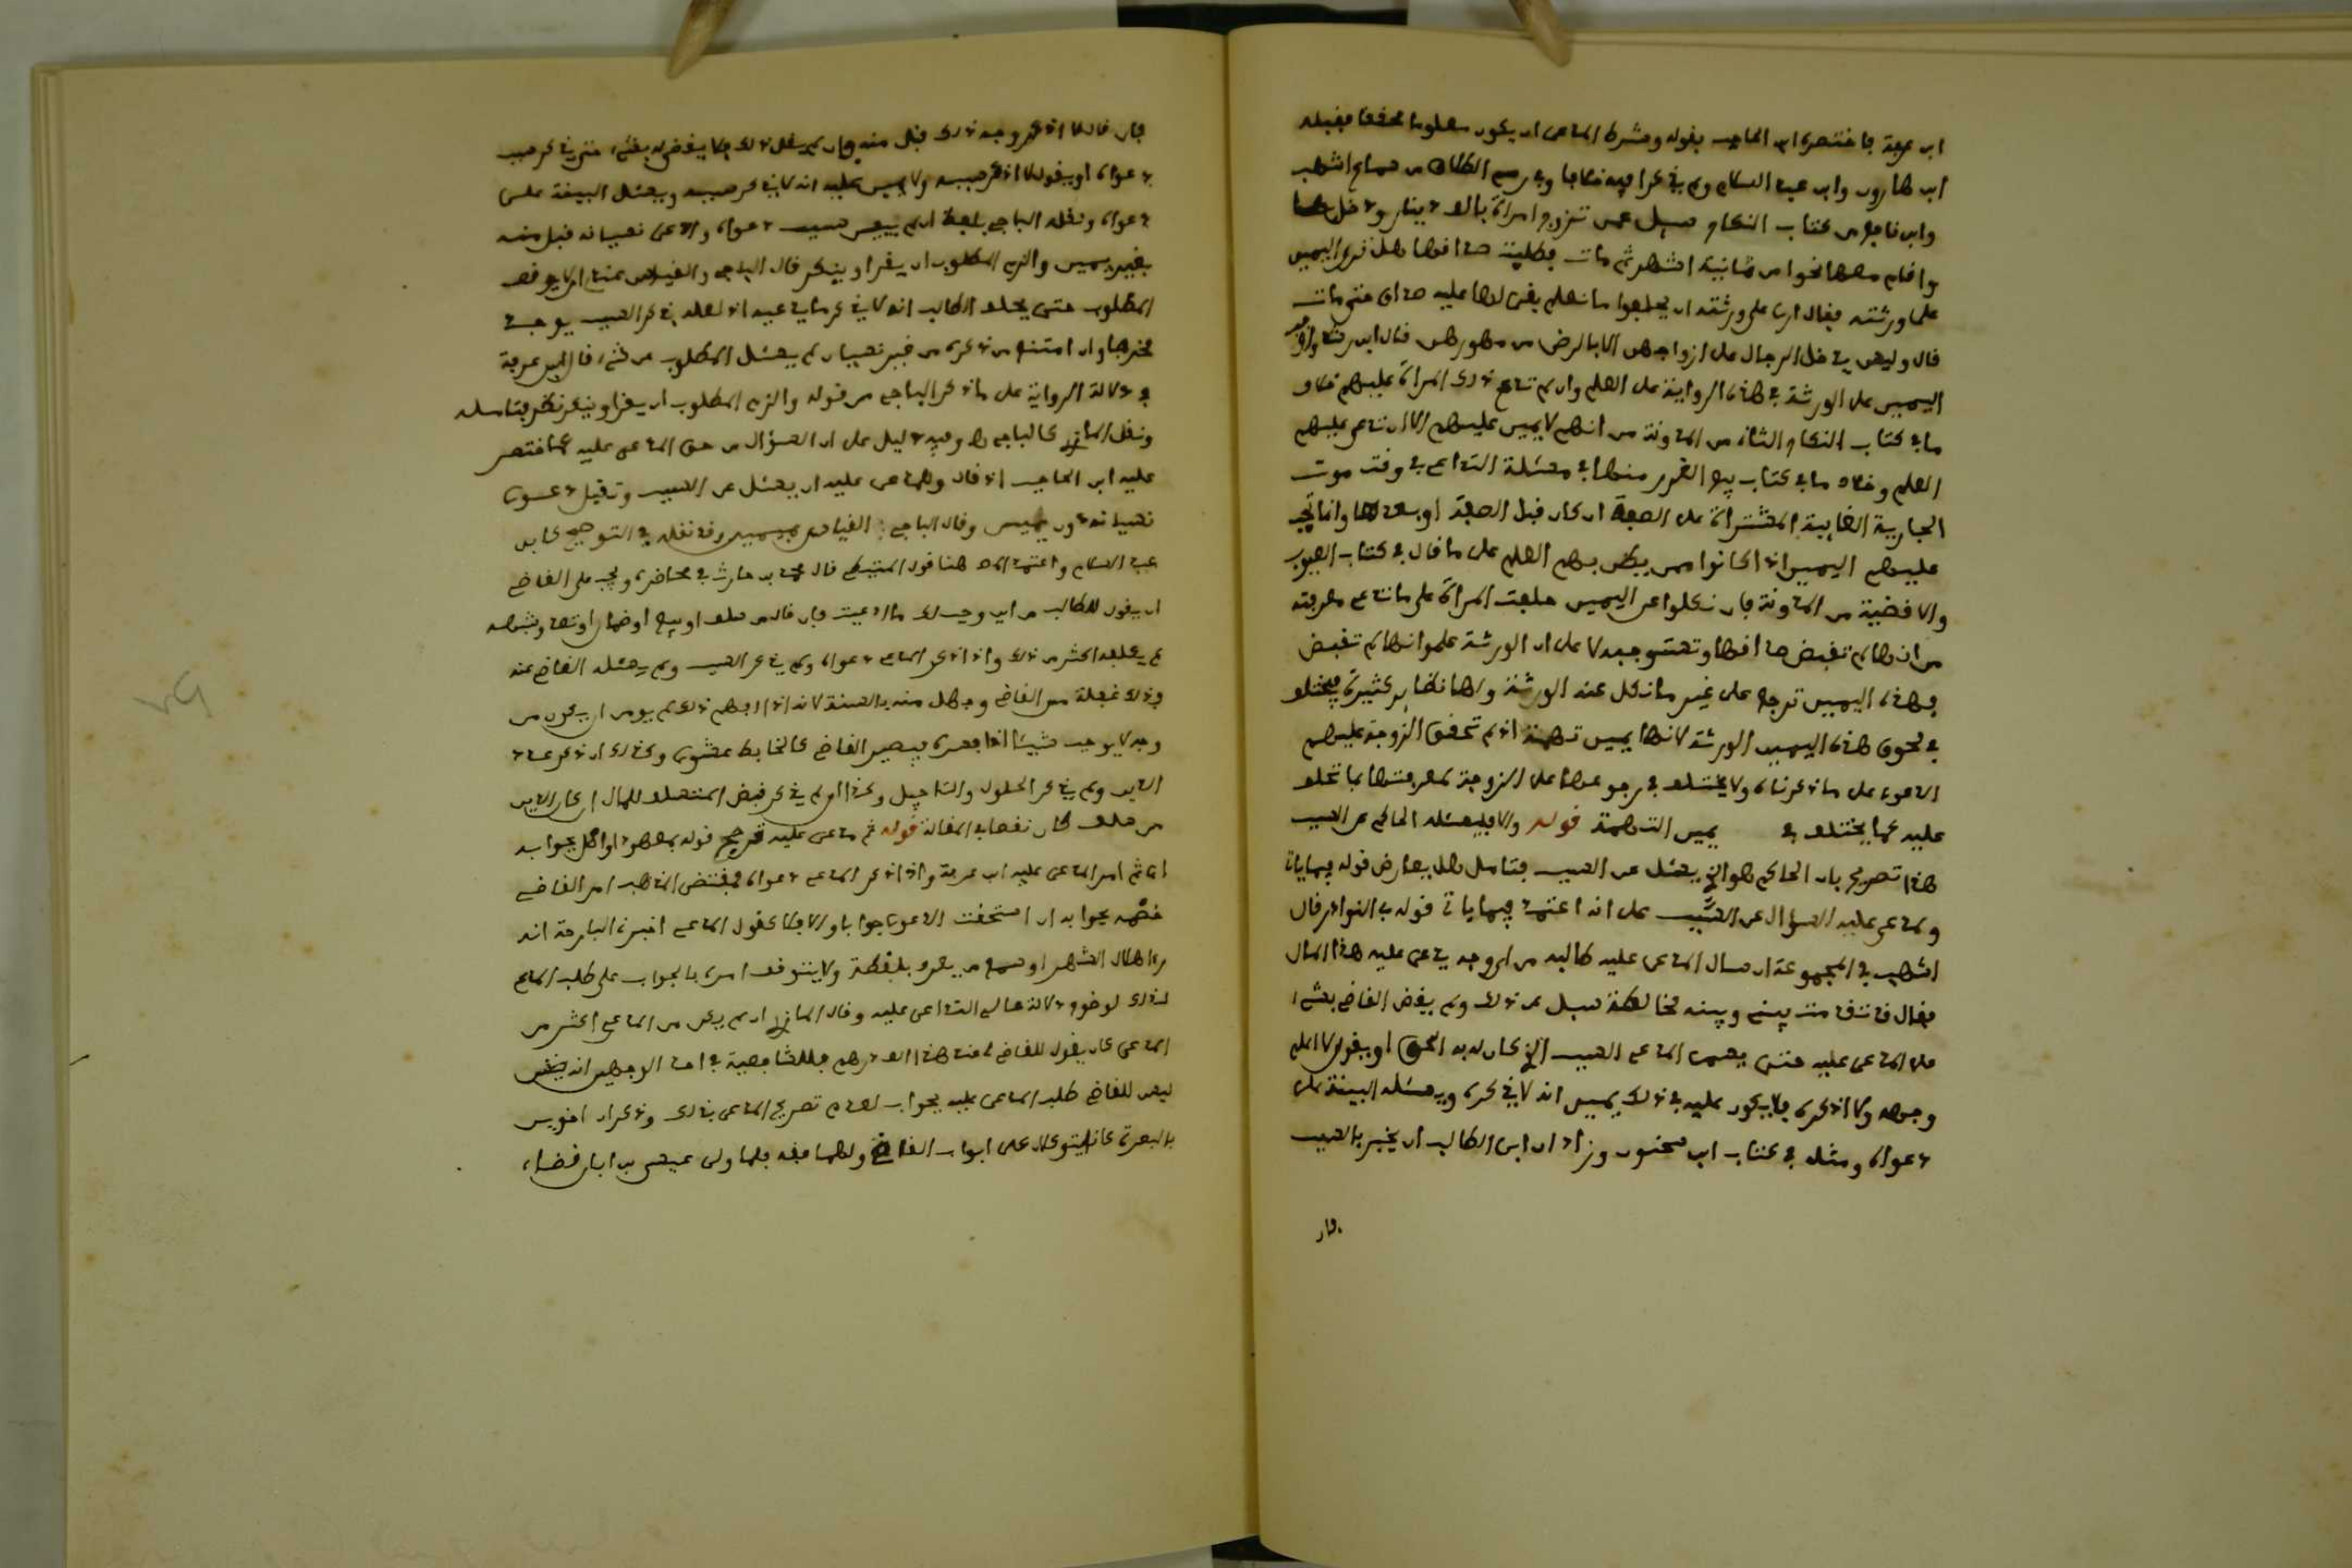 ابن عرفة فاختصره ابن الحاجب بقوله وشرط المدعى ان يكون معلوما محققا فقبله
ابن هارون وابن عبد السلام ولم يذكرا فيه خلافا وفي رسم الطلاق من سماع اشهب
وابن نافع من كتاب النكاح سيل عمن تزوج امراة بالف دينار ودخل بها
واقام معها نحوا من ثمانية اشهر ثم مات فطلبت صداقها هل ترى اليمين
على ورثته فقال ارى على ورثته ان يحلفوا ما نعلم بقي لها عليه صداق حتى مات
قال وليس يدخل الرجال على ازواجهن الا بالرضى من مهورهن قال ابن رشد اوجب
اليمين على الورثة في هذه الرواية على العلم وان لم تدع ذلك المراة عليهم خلاف
ما في كتاب النكاح الثاني من المدونة من انهم لا يمين عليهم الا ان تدعي عليهم
العلم وخلاف ما في كتاب بيع الغرر منها في مسئلة التداعي في وقت موت
الجارية الغايبة المشتراة على الصفة ان كان قبل الصفقة او بعدها وانما تجب
عليهم اليمين اذا كانوا ممن يظن بهم العلم على ما قال في كتاب العيوب
والاقضية من المدونة فان نكلوا عن اليمين حلفت المراة على ما تدعي معرفته
من انها لم تقبض صداقها وتستوجبه لا على ان الورثة علموا انها لم تقبض
فهذه اليمين ترجع على غير ما نكل عنه الورثة ولها نظاير كثيرة ويختلف
في لحوق هذه اليمين الورثة لانها يمين تهمة اذ لم تحقق الزوجة عليهم
الدعوى على ما ذكرناه ولا يختلف في رجوعها على الزوجة لمعرفتها بما تحلف
عليه كما يختلف في يمين التهمة قوله والا فليسئله الحاكم عن السبب
هذا تصريح بان الحاكم هو الذي يسئل عن السبب فتامل هل يعارض قوله فيما ياتي
ولمدعى عليه السؤال عن السبب على انه اعتمد فيما ياتي قوله في النوادر قال
اشهب في المجموعة ان سال المدعى عليه طالبه من اي وجه يدعي عليه هذا المال
فقال قد تقدمت بيني وبينه مخالطة سيل عن ذلك ولم يقض القاضي بشيء
على المدعى عليه حتى يسمي المدعي السبب الذي كان له به الحق او يقول لا اعلم
وجهه ولا اذكره فلا يكون عليه في ذلك يمين انه لا يذكره ويسئله البينة على
دعواه ومثله في كتاب ابن سحنون وزاد ان ابى الطالب ان يخبر بالسبب
فان
فان قال لا اذكر وجه ذلك قبل منه وان لم يقل ذلك فلا يقضى له بشيء حتى يذكر سبب
دعواه او يقول لا اذكر سببه ولا يمين عليه انه لا يذكر سببه ويسئل البينة على
دعواه ونقله الباجي بلفظ ان لم يبين سبب دعواه وادعى نسيانه قبل منه
بغير يمين والزم المطلوب ان يقر او ينكر قال الباجي والقياس عندي الا يوقف
المطلوب حتى يحلف الطالب انه لا يذكر ما يدعيه اذ لعله بذكر السبب يوجد
مخرجا وان امتنع من ذكره من غير نسيان لم يسئل المطلوب عن شيء قال ابن عرفة
في دلالة الرواية على ما ذكر الباجي من قوله والزم المطلوب ان يقر او ينكر نظر فتامله
ونقل المازري كالباجي وفيه دليل على ان السؤال من حق المدعى عليه كما اختصر
عليه ابن الحاجب اذ قال وللمدعى عليه ان يسئل عن السبب وتقبل دعوى
نسيانه دون يمين وقال الباجي القياس بيمين وقد نقله في التوضيح كابن
عبد السلام واعتمد المص هنا قول المتيطي قال محمد بن حارث في محاضره ويجب على القاضي
ان يقول للطالب من اين وجب لك ما ادعيت فان قال من سلف او بيع او ضمان او تعد وشبهه
لم يكلفه اكثر من ذلك واذا ذكر المدعي دعواه ولم يذكر السبب ولم يسئله القاضي عنه
فذلك غفلة من القاضي وجهل منه بالسنة لانه اذا ابهم ذلك لم يومن ان يكون من
وجه لا يوجب شيئا اذا فسره فيصير القاضي كالخابط عشوى وكذلك ان ذكر عدد
الدين ولم يذكر الحلول والتاجيل وكذا ان لم يذكر قبض المستسلف للمال ان كان الدين
من سلف كان نقصا في المقالة قوله ثم مدعى عليه ترجح قوله بمعهود او اصل بجوابه
اي ثم امر المدعى عليه ابن عرفة واذا ذكر المدعي دعواه فمقتضى المذهب امر القاضي
خصمه بجوابه ان استحقت الدعوى جوابا والا فلا كقول المدعي اخبرني البارحة انه
رءا هلال الشهر او سمع من يعرف بلقطة ولا يتوقف امره بالجواب على طلب المدعي
لذلك لوضوح دلالة حال التداعي عليه وقال المازري ان لم يكن من المدعي اكثر من
المدعى كان يقول للقاضي لي عند هذا الف درهم فللشافعية في احد الوجهين انه
ليس للقاضي طلب المدعى عليه بجواب لعدم تصريح المدعي بذلك وذكر ان اخوين
بالبصرة كانا يتوكلان على ابواب القاضي ولهما فقه فلما ولي عيسى بن ابان قضاء